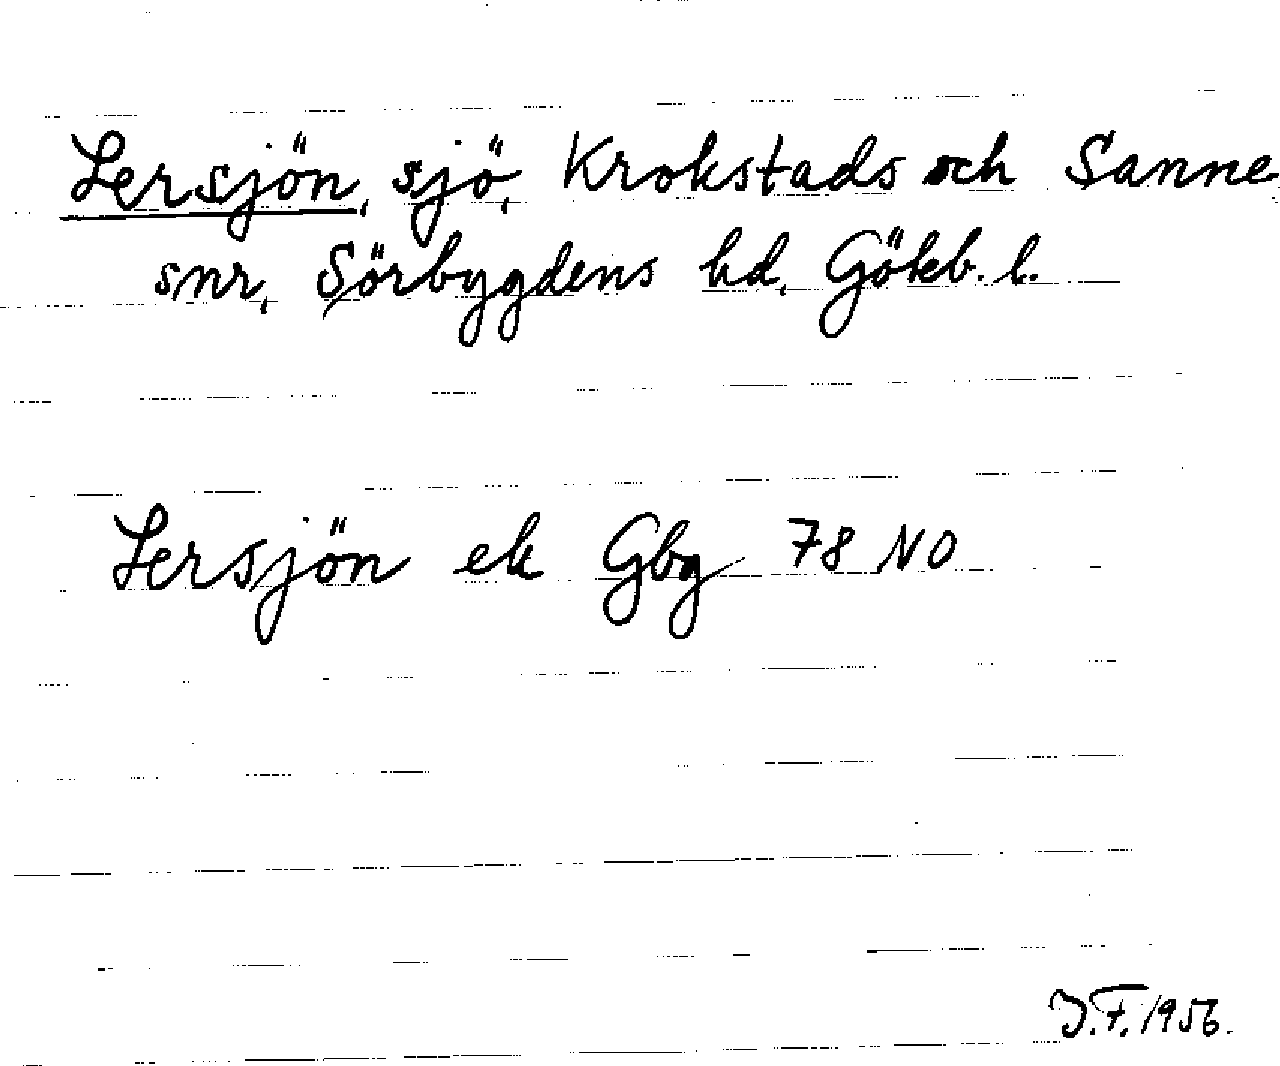 Lersjön, sjö, Krokstads och Sanne
snr, Sörbygdens hd, Gökb. l.
Lersjön ek Gbg 78 NO
J.F. 1956.